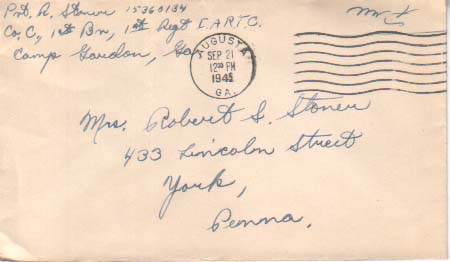 Pvt. R. Stoner 15360134
Co. C, 1st Bn, 1st Regt I.A.R.T.C.
Camp Gordon, Ga.
AUGUSTA
SEP 21
12 30 PM
1945
GA.
Mrs. Robert S. Stoner
433 Lincoln Street
York,
Penna.